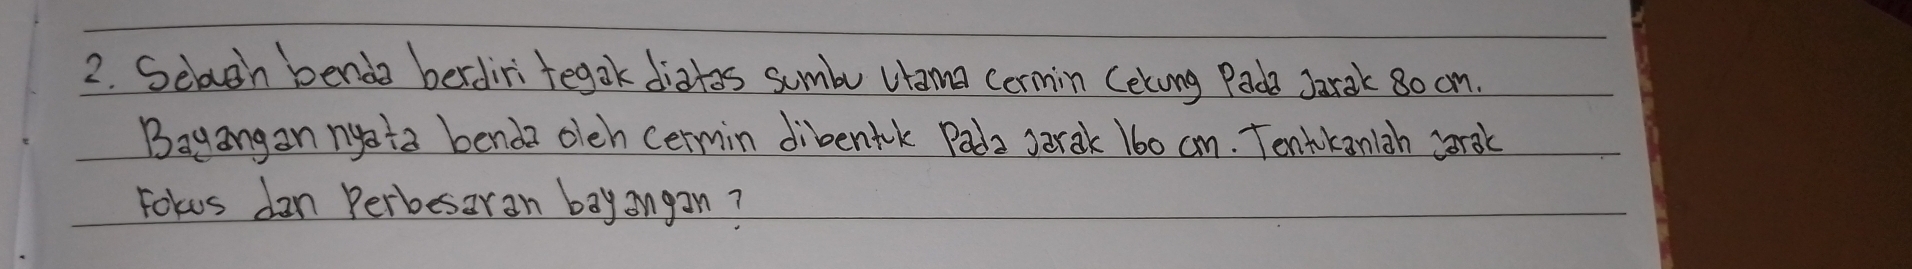 2. Sebuah benda berdiri tegak diatas sumbu utama cermin cekung Pada Jarak 80 cm.
Bayangan nyata benda oleh cermin dibentuk Pada jarak 160 cm. Tentukanlah jarak
Fokus dan Perbesaran bayangan?